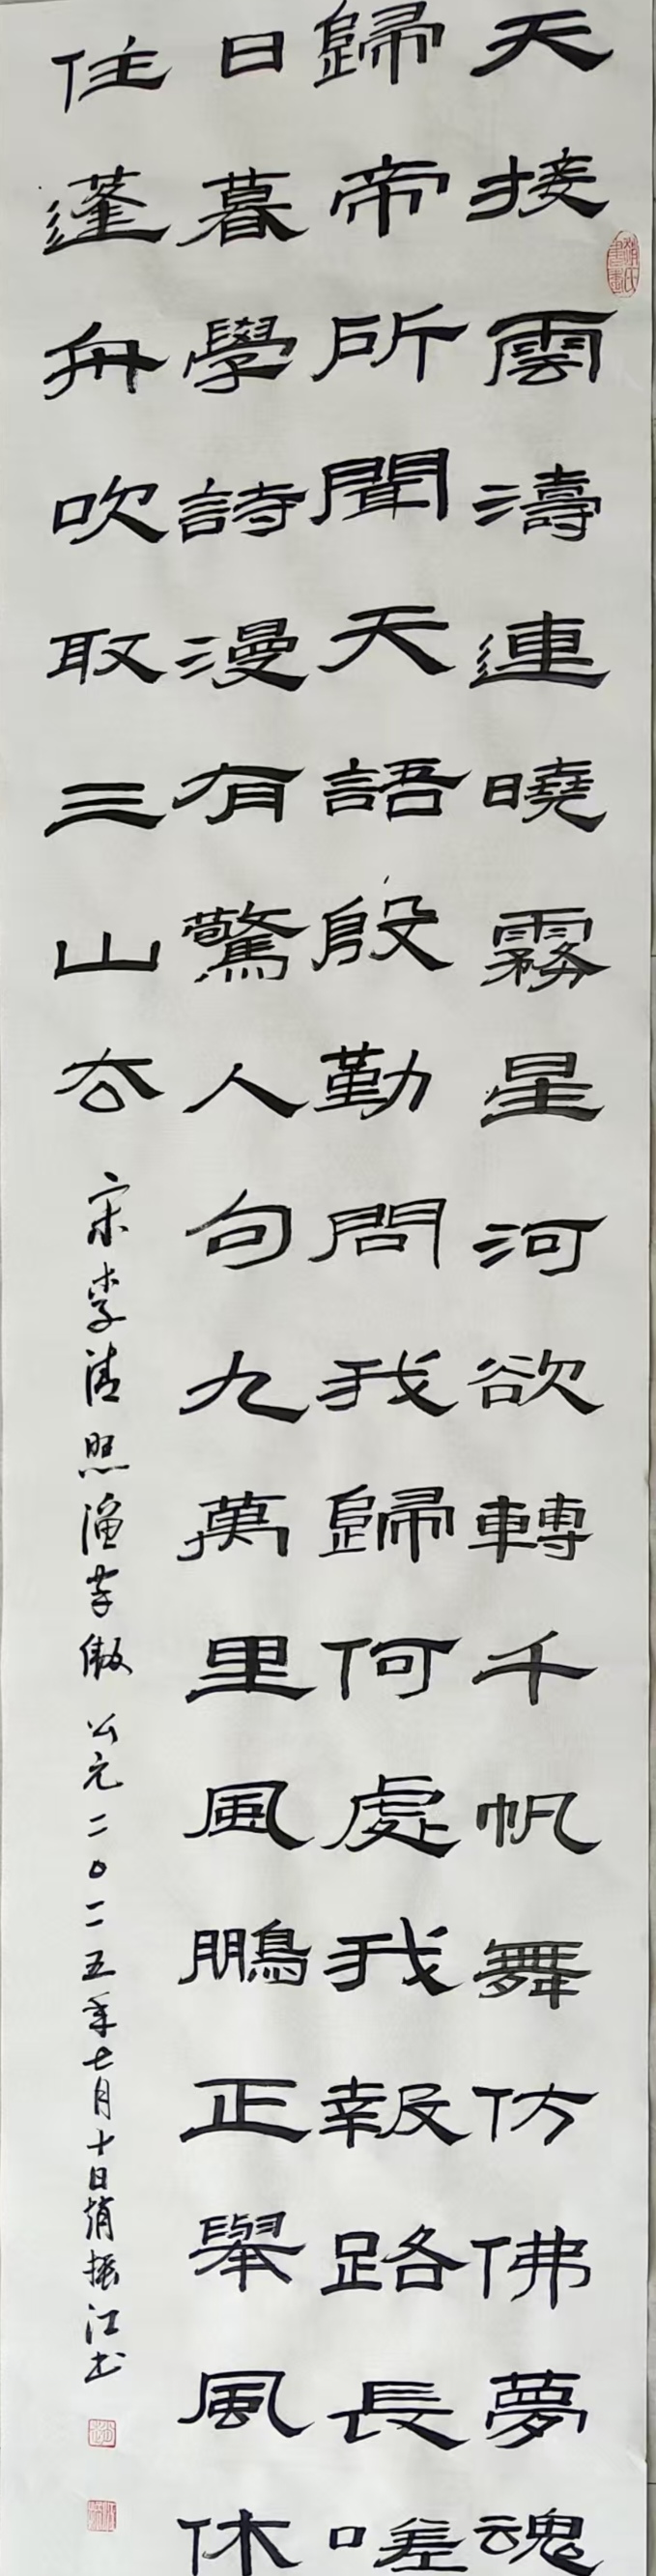 天接雲濤連曉霧星河欲轉千帆舞仿佛夢魂
歸帝所聞天語殷勤問我歸何處我報路長嗟
日暮學詩漫有驚人句九萬里風鵬正舉風休
住蓬舟吹取三山去
宋李清照漁家傲 公元二〇二五年七月十日趙振江书